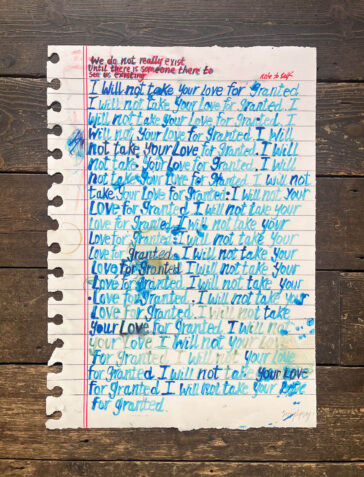 We do not really exist
Until there is someone there to
see us existing
note to self
I Will not take your love for Granted
I will not take Your Love for Granted. I
Will not take Your Love for Granted. I
Will not Your Love for Granted I Will
not take Your Love for Granted. I will
not take Your Love for Granted. I will
not take Your Love for Granted I will not
take Your Love for Granted. I will not Your
Love for Granted I will not take your
Love for Granted I will not take your
Love for Granted I will not take Your
Love for Granted. I will not take Your
Love for Granted I will not take Your
Love for Granted. I will not take Your
Love for Granted. I will not take Your
Love for Granted. I will not take
your Love for Granted I will not
your Love I will not your Love
for Granted I will not Your Love
for Granted I will not take Your Love
for Granted I will not take Your
for Granted.